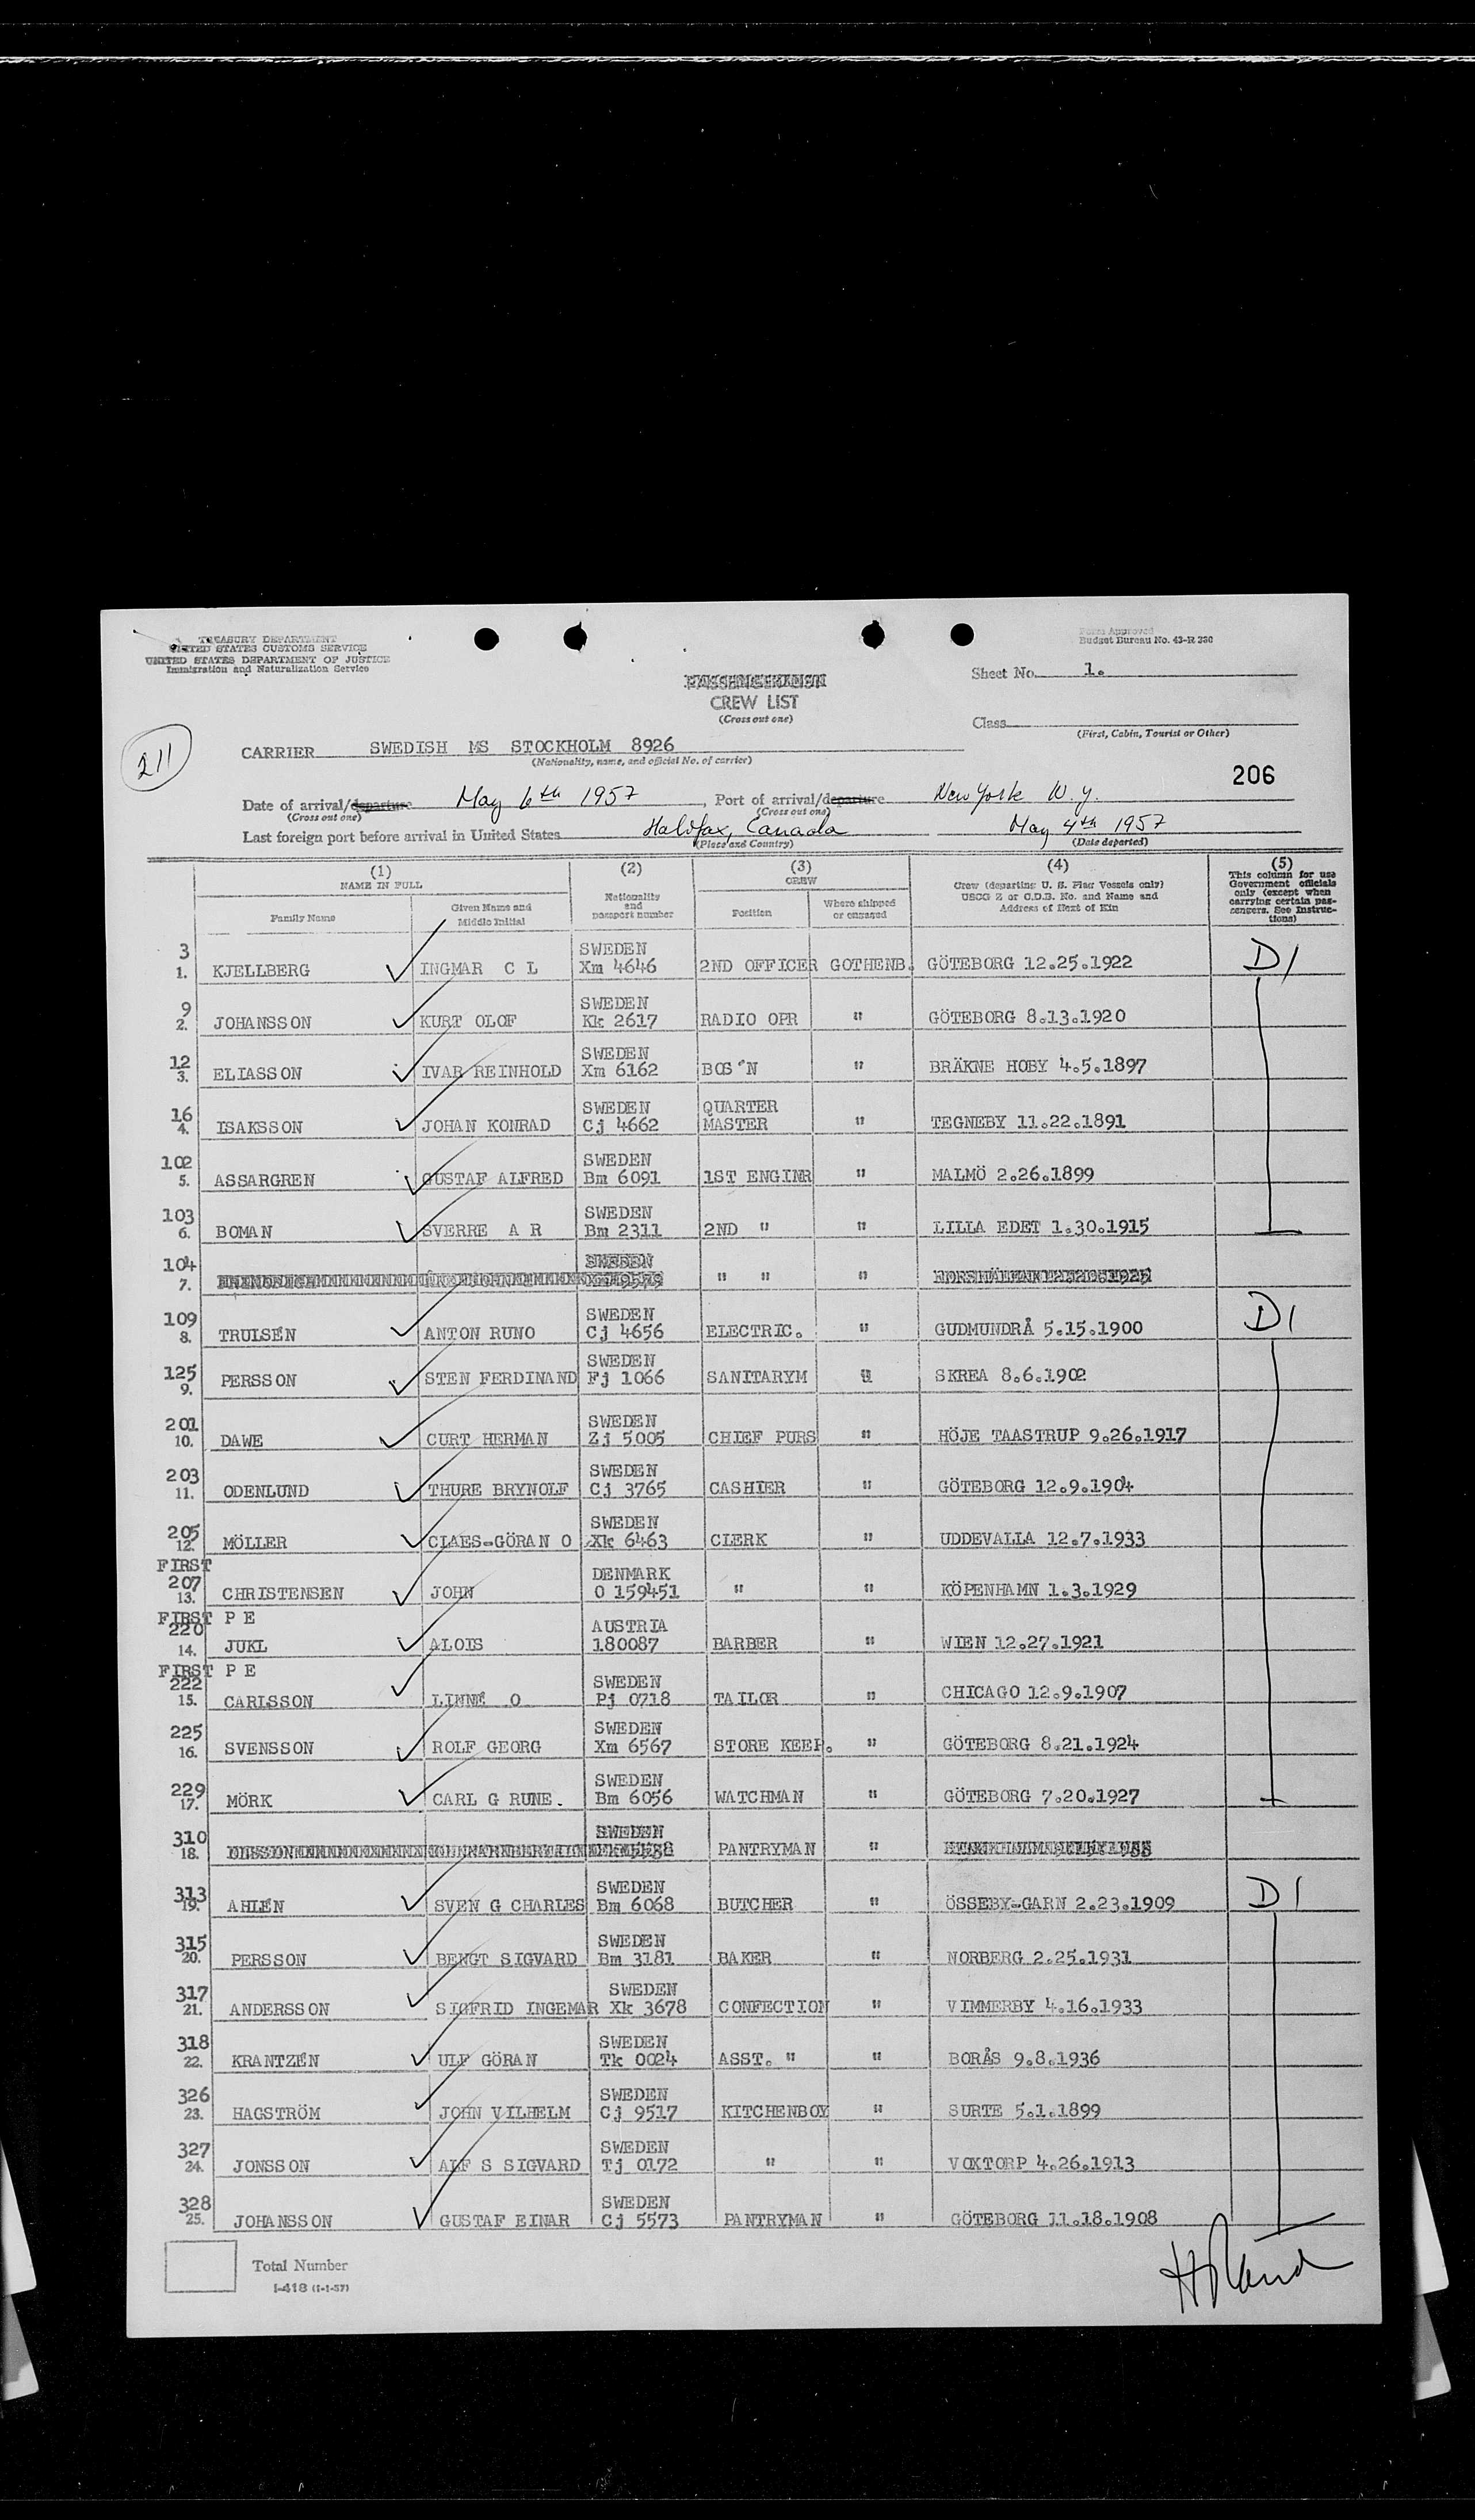 TREASURY DEPARTMENT
UNITED STATES CUSTOMS SERVICE
UNITED STATES DEPARTMENT OF JUSTICE
Immigration and Naturalization Service
Form Approved
Budget Bureau No. 43-R 330
Sheet No. 1.
CREW LIST
(Cross out one)
Class
(First, Cabin, Tourist or Other)
211
CARRIER SWEDISH MS STOCKHOLM 8926
(Nationality, name, and official No. of carrier)
206
Date of arrival/departure May 6th 1957, Port of arrival/departure New York N.Y.
(Cross out one) (Cross out one)
Last foreign port before arrival in United States Halifax, Canada May 4th 1957
(Place and Country) (Date departed)
(1) NAME IN FULL
Family Name
Given Name and Middle Initial
(2) Nationality and passport number
(3) CREW
Position
Where shipped or engaged
(4) Crew (departing U. S. Flag Vessels only) USCG Z or C.D.B. No. and Name and Address of Next of Kin
(5) This column for use Government officials only (except when carrying certain passengers. See Instructions)
3 SWEDEN
1. KJELLBERG INGMAR C L Xm 4646 2ND OFFICER GOTHENB. GÖTEBORG 12.25.1922 D1
9 SWEDEN
2. JOHANSSON KURT OLOF Kk 2617 RADIO OPR " GÖTEBORG 8.13.1920
12 SWEDEN
3. ELIASSON IVAR REINHOLD Xm 6162 BOS'N " BRÄKNE HOBY 4.5.1897
16 SWEDEN QUARTER
4. ISAKSSON JOHAN KONRAD Cj 4662 MASTER " TEGNEBY 11.22.1891
102 SWEDEN
5. ASSARGREN GUSTAF ALFRED Bm 6091 1ST ENGINR " MALMÖ 2.26.1899
103 SWEDEN
6. BOMAN SVERRE A R Bm 2311 2ND " " LILLA EDET 1.30.1915
104 SWEDEN
7. " " "
109 SWEDEN
8. TRULSÉN ANTON RUNO Cj 4656 ELECTRIC. " GUDMUNDRÅ 5.15.1900 D1
125 SWEDEN
9. PERSSON STEN FERDINAND Fj 1066 SANITARYM " SKREA 8.6.1902
201 SWEDEN
10. DAWE CURT HERMAN Zj 5005 CHIEF PURS " HÖJE TAASTRUP 9.26.1917
203 SWEDEN
11. ODENLUND THURE BRYNOLF Cj 3765 CASHIER " GÖTEBORG 12.9.1904
205 SWEDEN
12. MÖLLER CLAES-GÖRAN O Xk 6463 CLERK " UDDEVALLA 12.7.1933
FIRST
207 DENMARK
13. CHRISTENSEN JOHN O 159451 " " KÖPENHAMN 1.3.1929
FIRST P E
220 AUSTRIA
14. JUKL ALOIS 180087 BARBER " WIEN 12.27.1921
FIRST P E
222 SWEDEN
15. CARLSSON LINNÉ O Pj 0718 TAILOR " CHICAGO 12.9.1907
225 SWEDEN
16. SVENSSON ROLF GEORG Xm 6567 STORE KEEP. " GÖTEBORG 8.21.1924
229 SWEDEN
17. MÖRK CARL G RUNE. Bm 6056 WATCHMAN " GÖTEBORG 7.20.1927
310 SWEDEN
18. PANTRYMAN "
313 SWEDEN
19. AHLÉN SVEN G CHARLES Bm 6068 BUTCHER " ÖSSEBY-GARN 2.23.1909 D1
315 SWEDEN
20. PERSSON BENGT SIGVARD Bm 3181 BAKER " NORBERG 2.25.1931
317 SWEDEN
21. ANDERSSON SIGFRID INGEMAR Xk 3678 CONFECTION " VIMMERBY 4.16.1933
318 SWEDEN
22. KRANTZÉN ULF GÖRAN Tk 0024 ASST. " " BORÅS 9.8.1936
326 SWEDEN
23. HAGSTRÖM JOHN VILHELM Cj 9517 KITCHENBOY " SURTE 5.1.1899
327 SWEDEN
24. JONSSON ALF S SIGVARD Tj 0172 " " VOXTORP 4.26.1913
328 SWEDEN
25. JOHANSSON GUSTAF EINAR Cj 5573 PANTRYMAN " GÖTEBORG 11.18.1908
Total Number
I-418 (1-1-57)